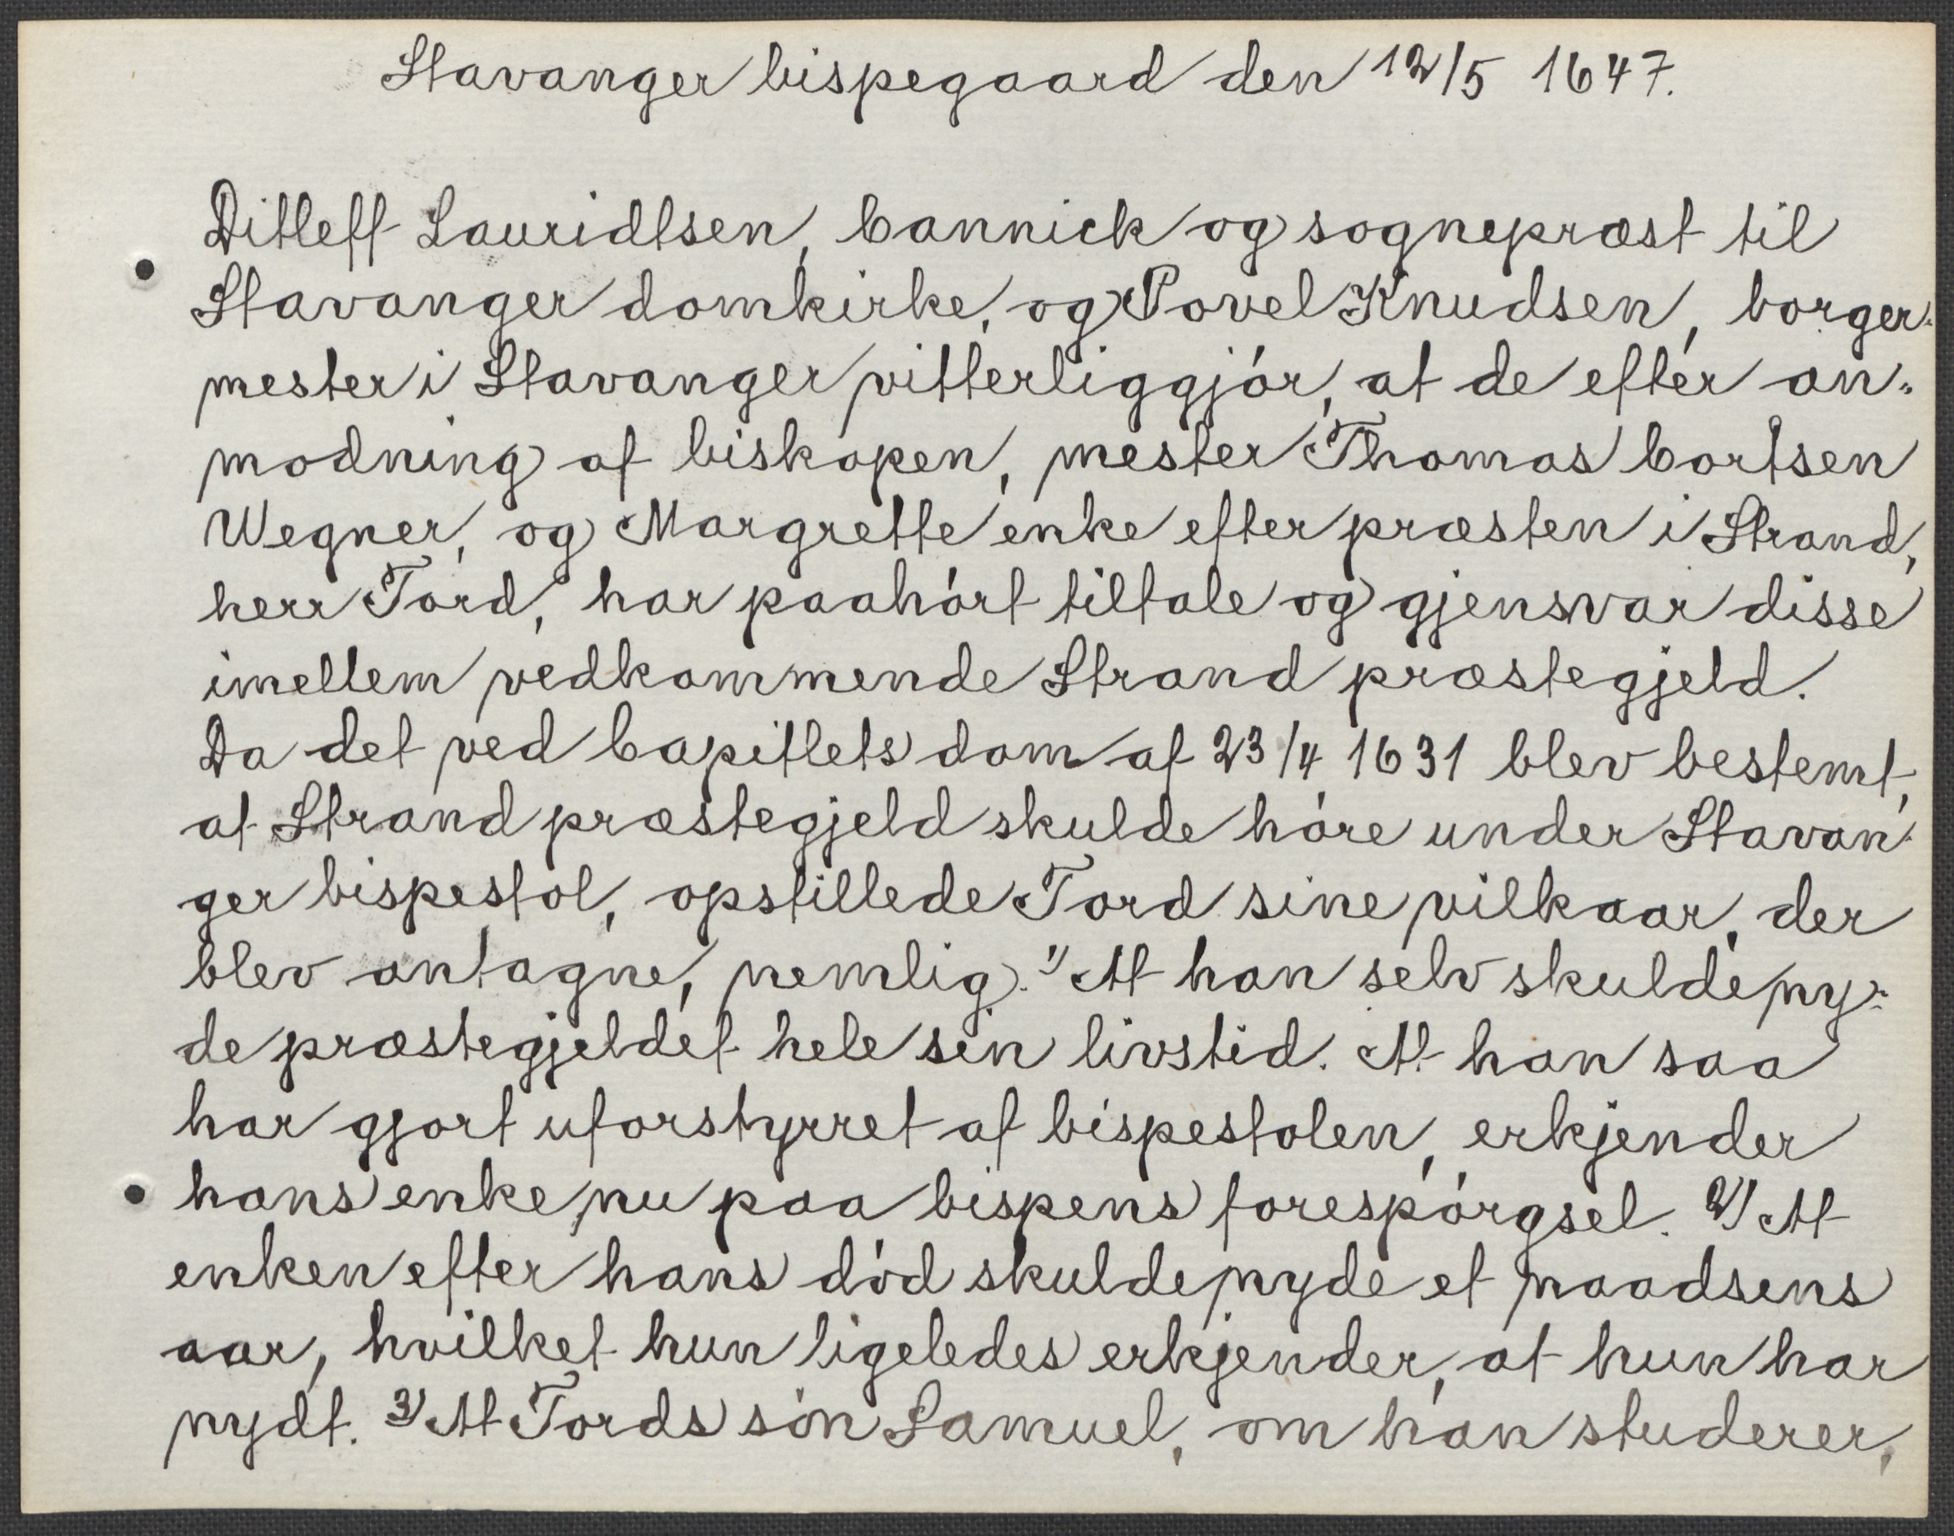 Stavanger bispegaard den 12/5 1647.
Ditleff Lauridtsen, Cannick og sognepræst til
Stavanger domkirke, og Povel Knudsen, borger-
mester i Stavanger vitterliggjór, at de efter an-
modning af biskopen, mester Thomas Cortsen
Wegner, og Margrette enke efter præsten i Strand,
herr Tord, har paahórt tiltale og gjensvar disse
imellem vedkommende Strand præstegjeld.
Da det ved Capitlets dom af 23/4 1631 blev bestemt,
at Strand præstegjeld skulde hóre under Stavan-
ger bispestol, opstillede Tord sine vilkaar, der
blev antagne, nemlig. 1/ At han selv skulde ny-
de præstegjeldet hele sin livstid. At han saa
har gjort uforstyrret af bispestolen, erkjender
hans enke nu paa bispens forespórgsel. 2/ At
enken efter hans dód skulde nyde et naadsens
aar, hvilket hun ligeledes erkjender, at hun har
nydt. 3/ At Tords són Samuel, om han studerer,